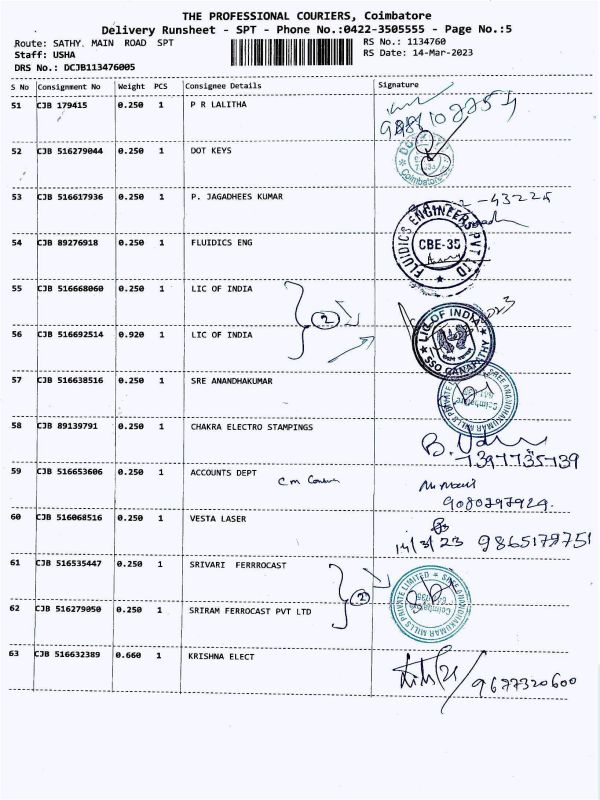 THE PROFESSIONAL COURIERS, Coimbatore
Delivery Runsheet - SPT - Phone No.:0422-3505555 - Page No.:5
Route: SATHY. MAIN ROAD SPT
RS No.: 1134760
Staff: USHA
RS Date: 14-Mar-2023
DRS No.: DCJB113476005
S No Consignment No Weight PCS Consignee Details Signature
51 CJB 179415 0.250 1 P R LALITHA
52 CJB 516279044 0.250 1 DOT KEYS
Coimbatore
53 CJB 516617936 0.250 1 P. JAGADHEES KUMAR
54 CJB 89276918 0.250 1 FLUIDICS ENG
FLUIDICS ENGINEERS PVT LTD
CBE-35
55 CJB 516668060 0.250 1 LIC OF INDIA
2
56 CJB 516692514 0.920 1 LIC OF INDIA
LIC OF INDIA
SSO GANAPATHY
57 CJB 516638516 0.250 1 SRE ANANDHAKUMAR
SREE ANANDHAKUMAR MILLS PRIVATE
58 CJB 89139791 0.250 1 CHAKRA ELECTRO STAMPINGS
7397735739
59 CJB 516653606 0.250 1 ACCOUNTS DEPT
9080797929.
60 CJB 516068516 0.250 1 VESTA LASER
14/3/23 9865179751
61 CJB 516535447 0.250 1 SRIVARI FERRROCAST
2
62 CJB 516279050 0.250 1 SRIRAM FERROCAST PVT LTD
SREE ANANDHAKUMAR MILLS PRIVATE LIMITED
63 CJB 516632389 0.660 1 KRISHNA ELECT
9677320600